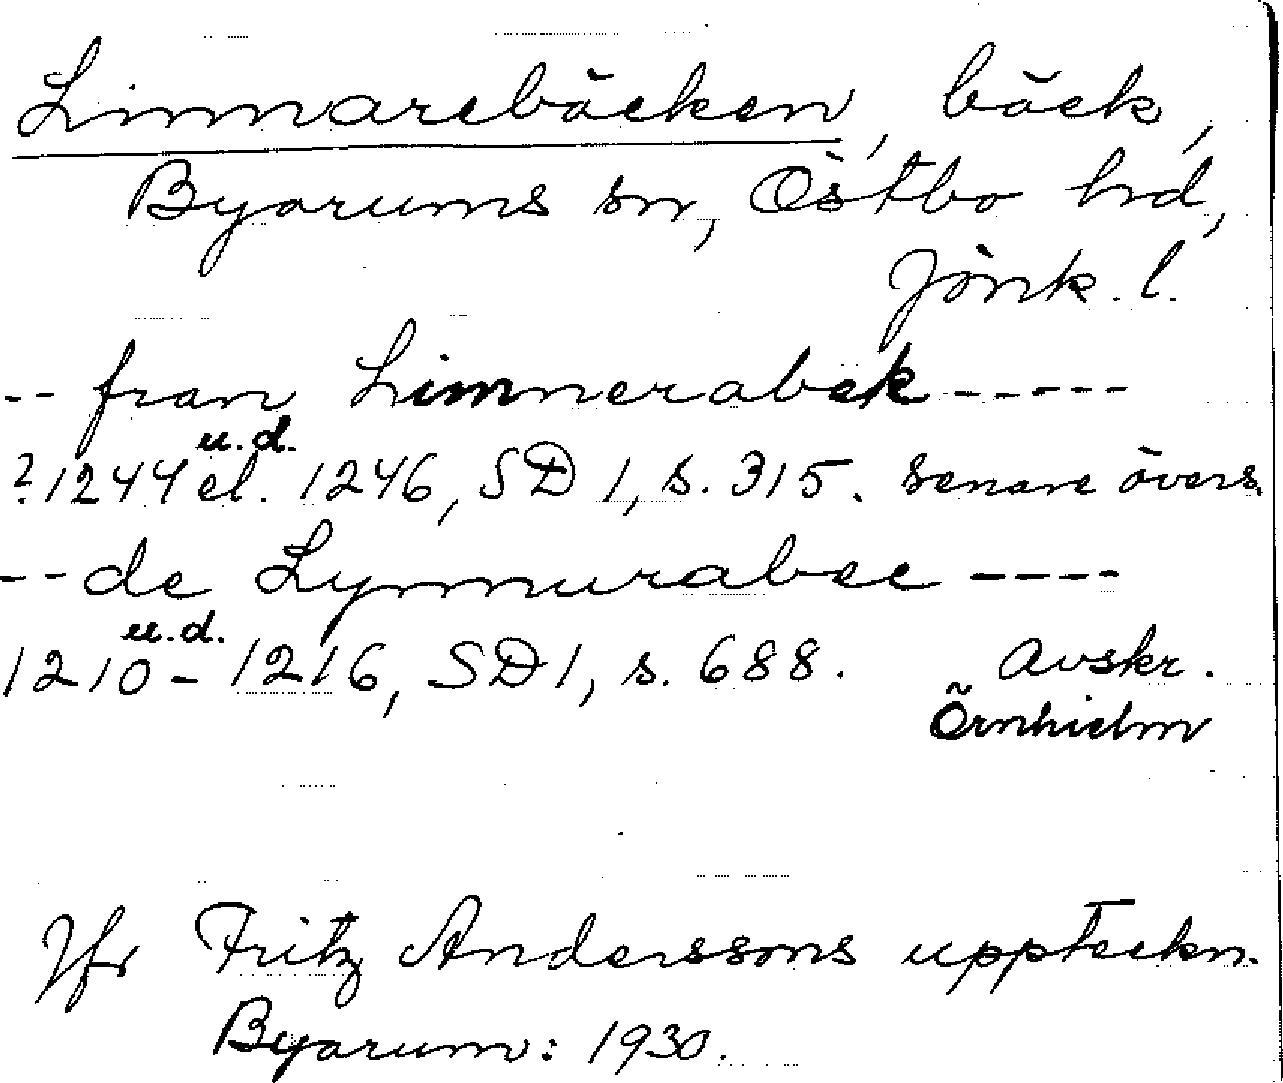 Linnarebäcken, bäck,
Byarums sn, Östbo hd,
Jönk. l.
-- fran Limnerabek -----
u.d.
? 1244 el. 1246, SD 1, s. 315. senare övers.
-- de Lymmurabec ----
u.d.
1210 - 1216, SD 1, s. 688. Avskr.
Örnhielm
Jfr Fritz Anderssons uppteckn.
Byarum: 1930.